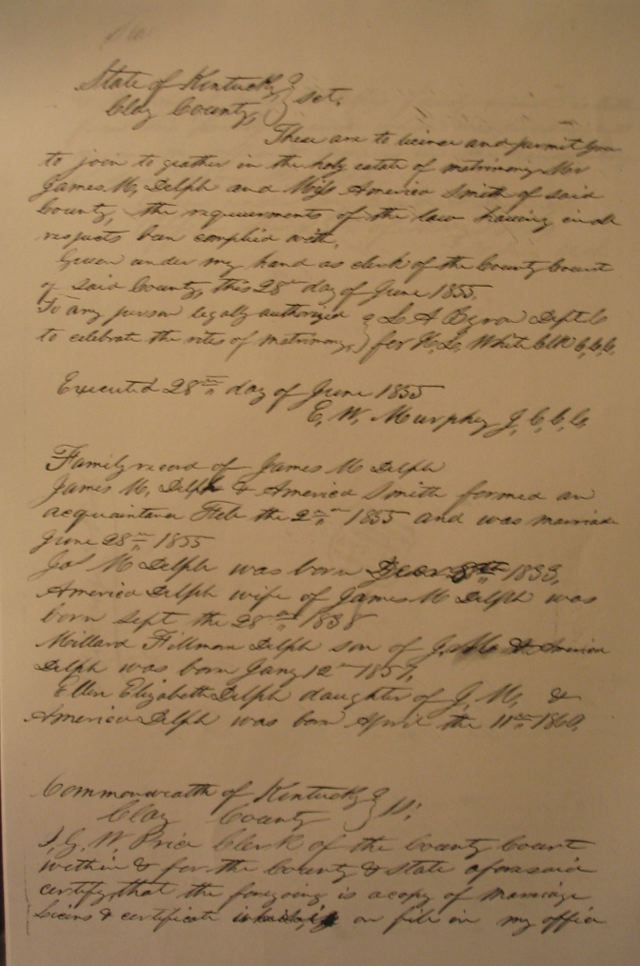 State of Kentucky } sct.
Clay County,
These are to licence and permit you
to join to geather in the holy estate of matrimony Mr
James M, Delph and Miss America Smith of said
County, the requirements of the law having in all
respects ben complied with,
Given under my hand as clerk of the County Court
of said County, this 28 day of June 1855,
To any person legally authorized } L A Byron Dept C
to celebrate the rites of matrimony, ) for White Clk C,C,C,
Executed 28th day of June 1855
E, W, Murphy J, C, C, C,
Family record of James M Delph
James M, Delph & America Smith formed an
acquaintance Feb the 2nd 1855 and was married
June 28th 1855
Jas M Delph was born 1833,
America Delph wife of James M Delph was
born Sept the 28th 1838
Millard Fillman Delph son of J, M, & America
Delph was born Jany 12th 1857,
Ellen Elizabeth Delph daughter of J, M, &
America Delph was born April the 11th 1860,
Commonwealth of Kentucky }
Clay County
I, G, W, Price Clerk of the County Court
within & for the County & State aforesaid
certify, that the foregoing is a copy of marriage
Licins & certificate on file in my office